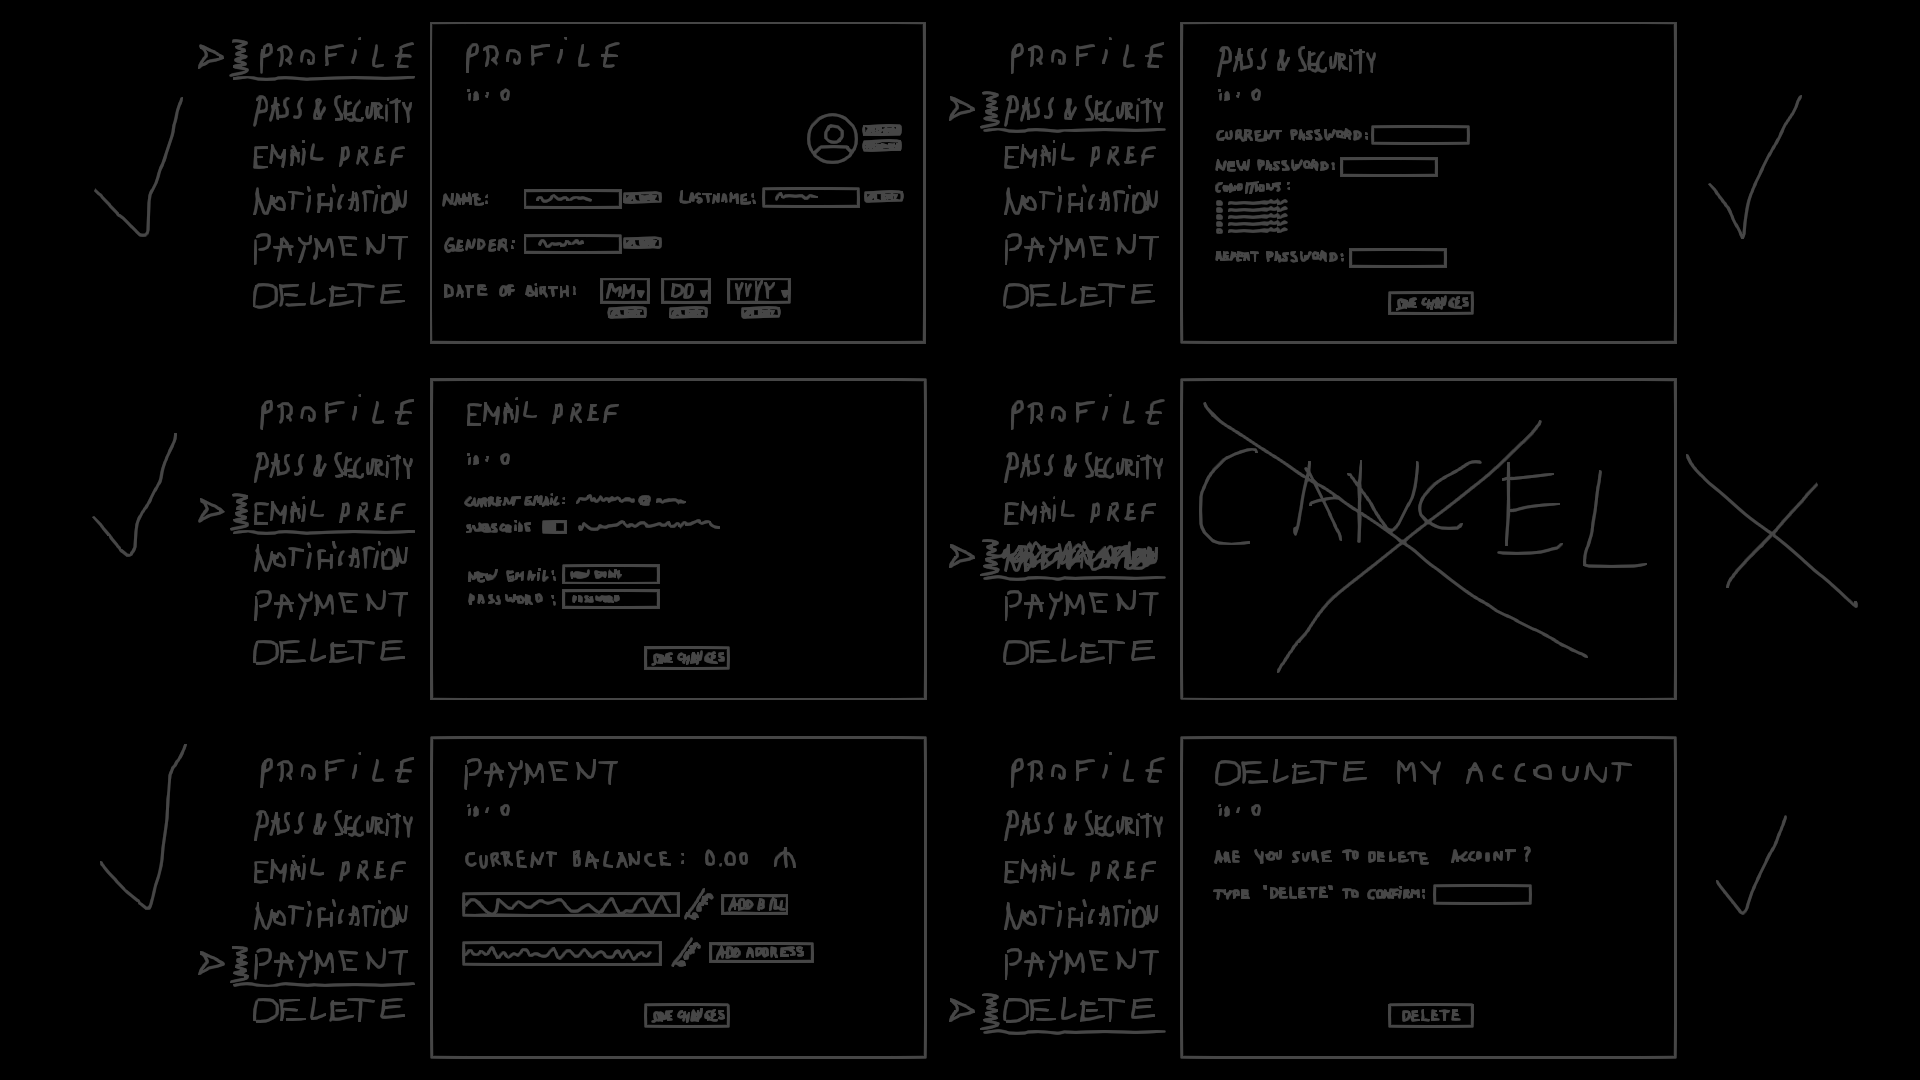 PROFILE
PASS & SECURITY
EMAIL PREF
NOTIFICATION
PAYMENT
DELETE
PROFILE
ID: 0
NAME:
LASTNAME:
GENDER:
DATE OF BIRTH:
MM DD YYYY
PROFILE
PASS & SECURITY
EMAIL PREF
NOTIFICATION
PAYMENT
DELETE
PASS & SECURITY
ID: 0
CURRENT PASSWORD:
NEW PASSWORD:
CONDITIONS:
REPEAT PASSWORD:
SAVE CHANGES
PROFILE
PASS & SECURITY
EMAIL PREF
NOTIFICATION
PAYMENT
DELETE
EMAIL PREF
ID: 0
CURRENT EMAIL:
NEW EMAIL: NEW EMAIL
PASSWORD: PASSWORD
SAVE CHANGES
PROFILE
PASS & SECURITY
EMAIL PREF
PAYMENT
DELETE
CANCEL
PROFILE
PASS & SECURITY
EMAIL PREF
NOTIFICATION
PAYMENT
DELETE
PAYMENT
ID: 0
CURRENT BALANCE: 0.00
ADD BILL
ADD ADDRESS
SAVE CHANGES
PROFILE
PASS & SECURITY
EMAIL PREF
NOTIFICATION
PAYMENT
DELETE
DELETE MY ACCOUNT
ID: 0
ARE YOU SURE TO DELETE ACCOUNT?
TYPE "DELETE" TO CONFIRM:
DELETE